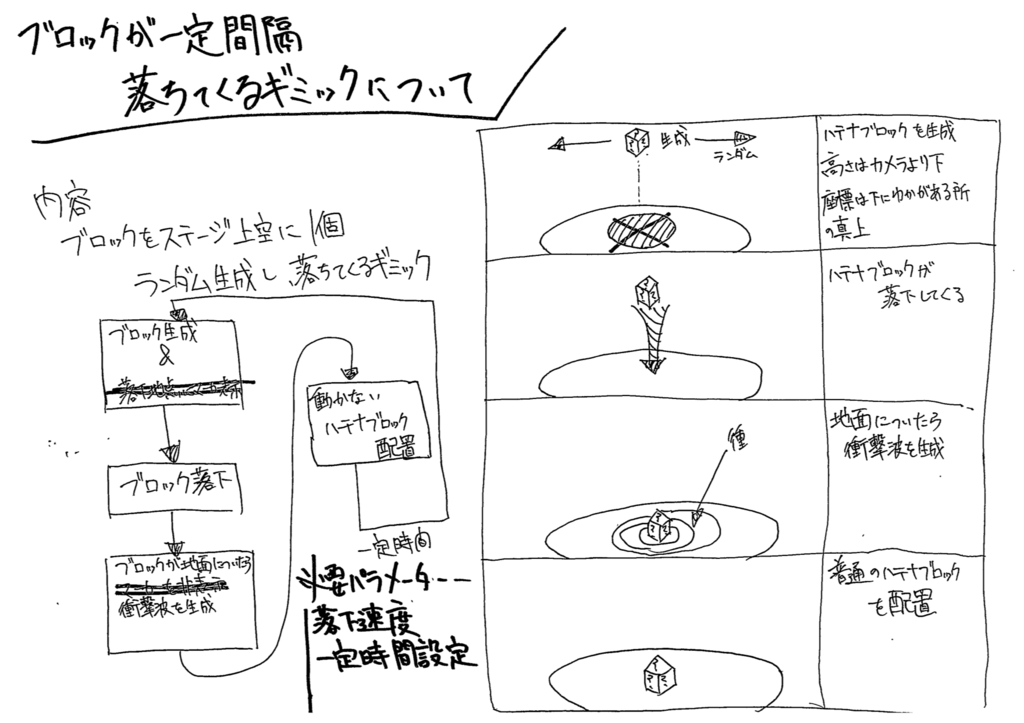 ブロックが一定間隔
落ちてくるギミックについて
内容
ブロックをステージ上空に1個
ランダム生成し、落ちてくるギミック
ブロック生成
&
ブロック落下
ブロックが地面についたら
衝撃波を生成
動かない
ハテナブロック
配置
一定時間
必要パラメータ…
落下速度
一定時間設定
生成
ランダム
ハテナブロックを生成
高さはカメラより下
座標は下にゆかがある所
の真上
ハテナブロックが
落下してくる
地面についたら
衝撃波を生成
普通のハテナブロック
を配置